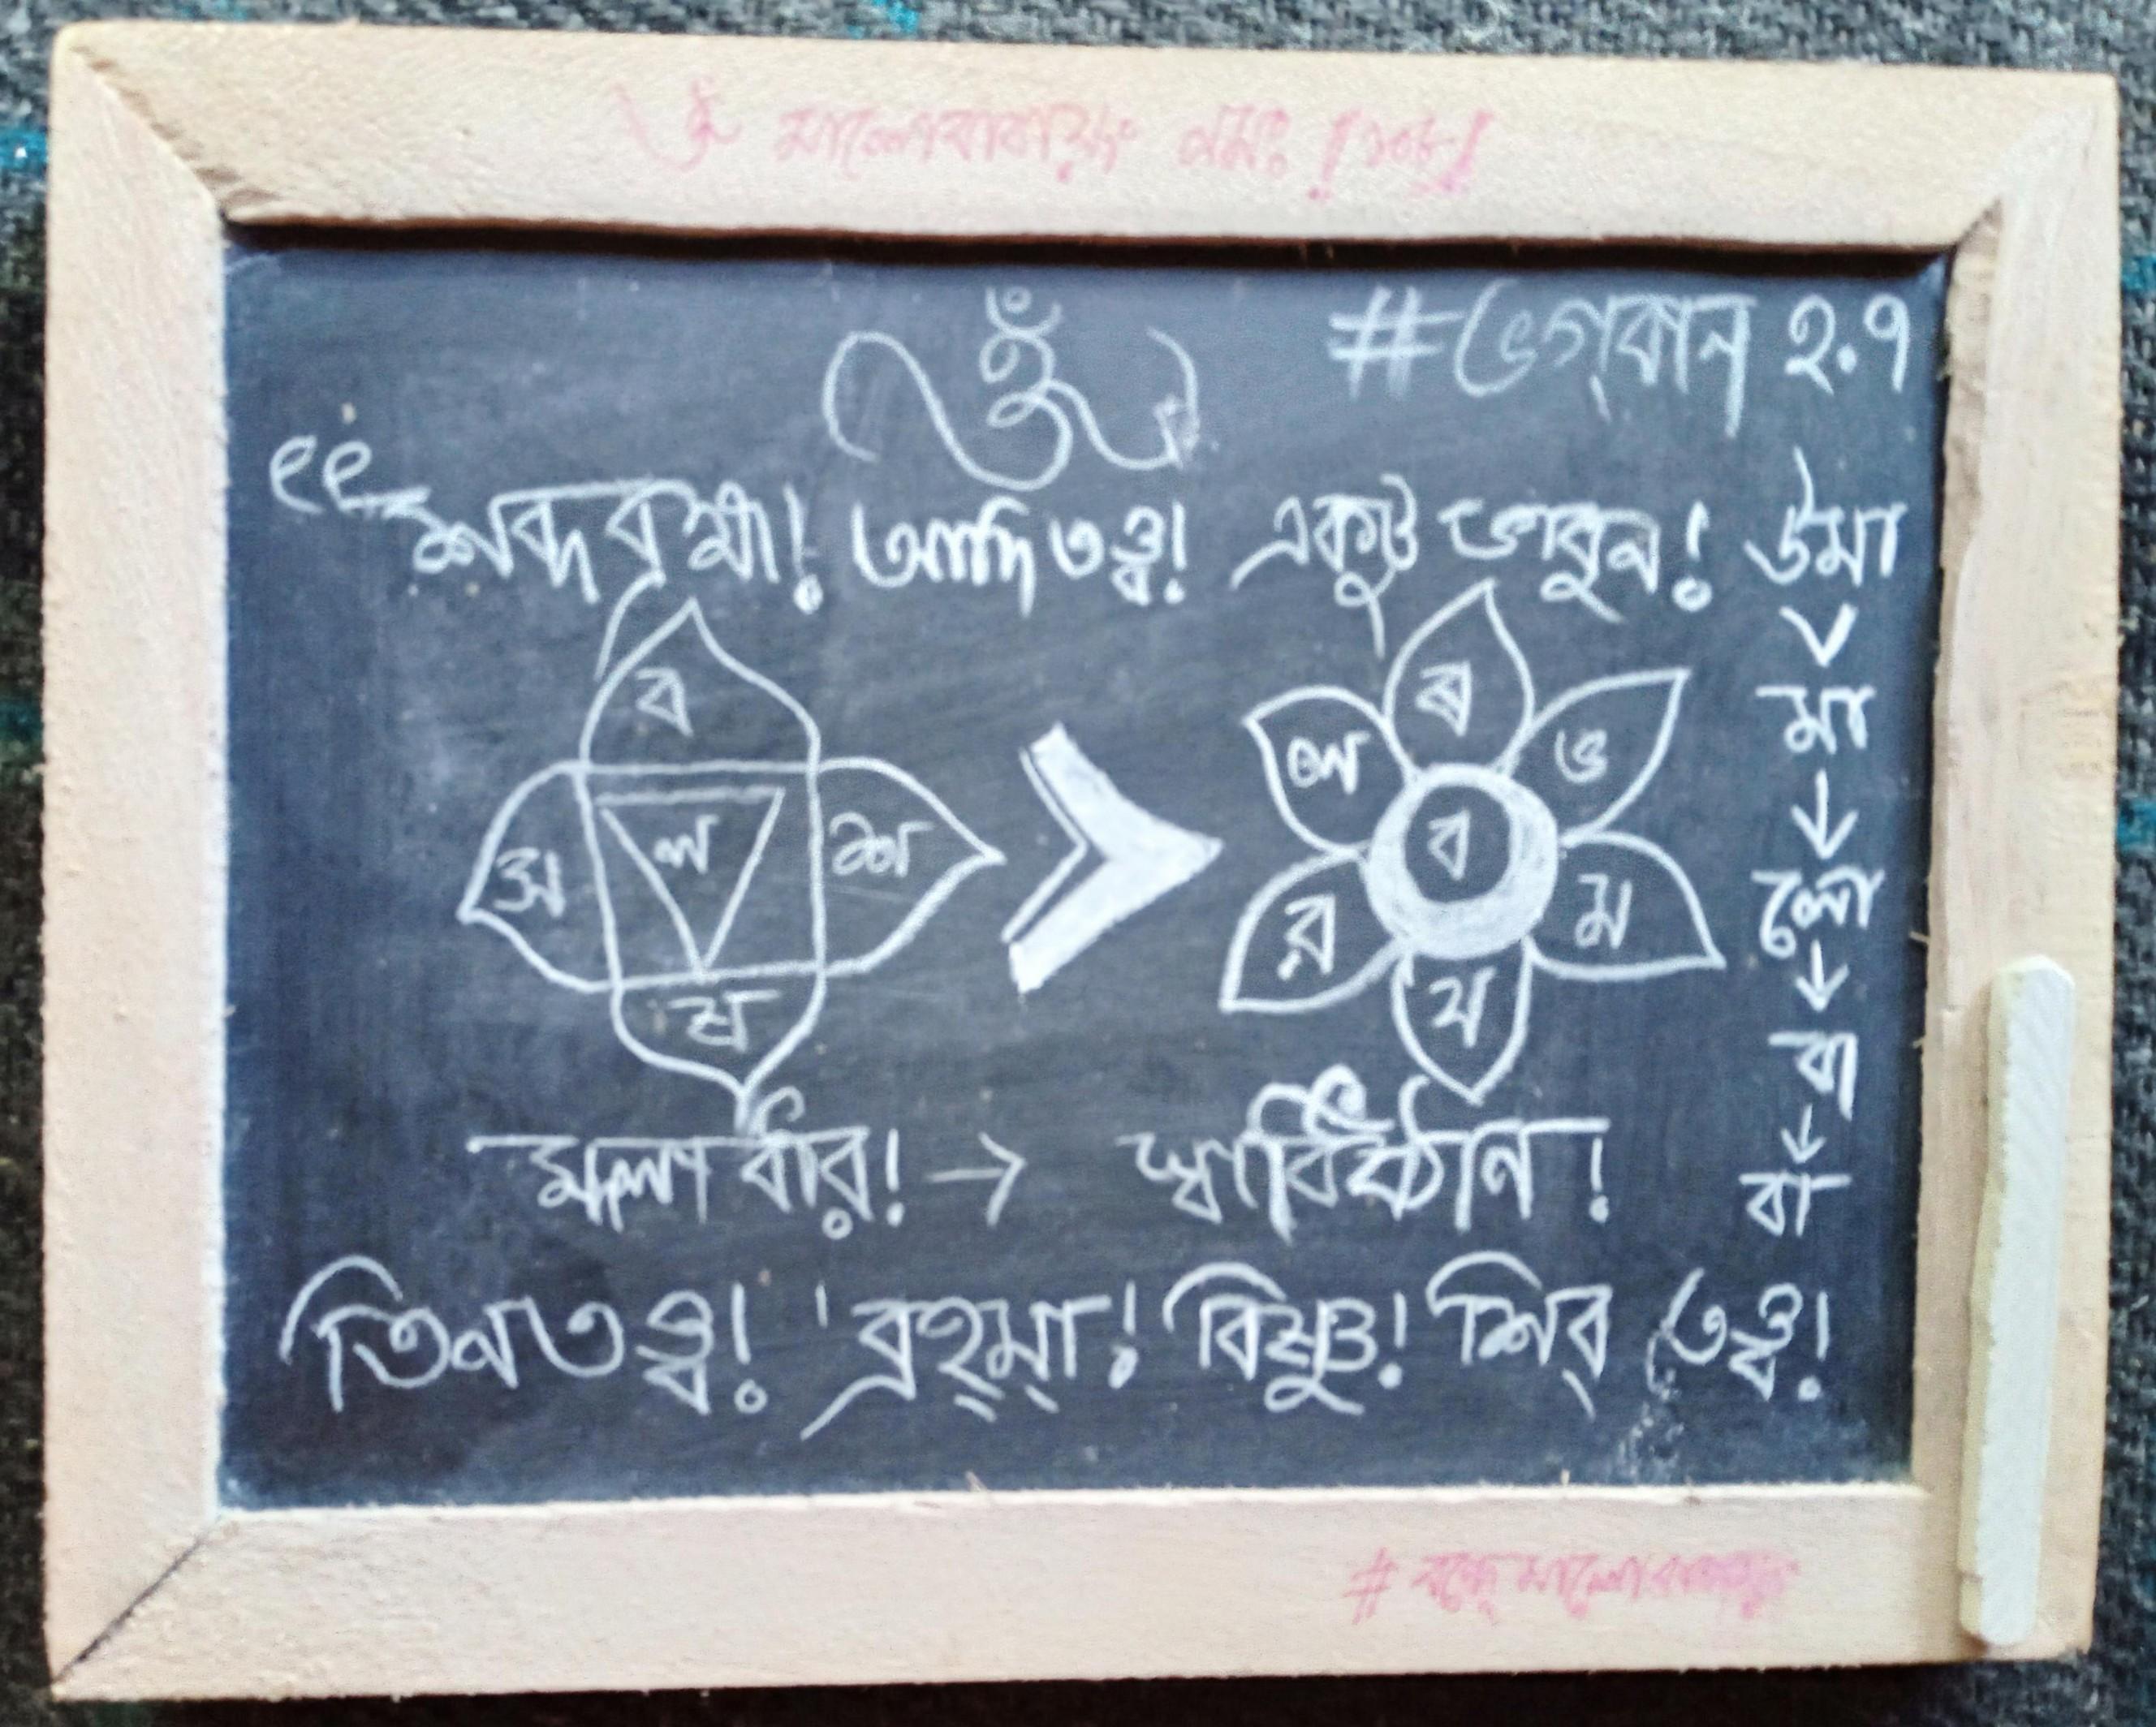 মালোবাবায়ৈঃ নমঃ !১০৮!
ওঁ
#ভগ্বান ২.৭
শব্দব্রহ্ম! আদি তত্ত্ব! একটু ভাবুন!
উমা
মা
লো
বা
বা
ব
স
ল
শ
ষ
ৰ
ল
ভ
ব
র
ম
য
মূলাধার! → স্বাধিষ্ঠান!
তিনতত্ত্ব! ব্রহ্মা! বিষ্ণু! শিব্ তত্ত্ব!